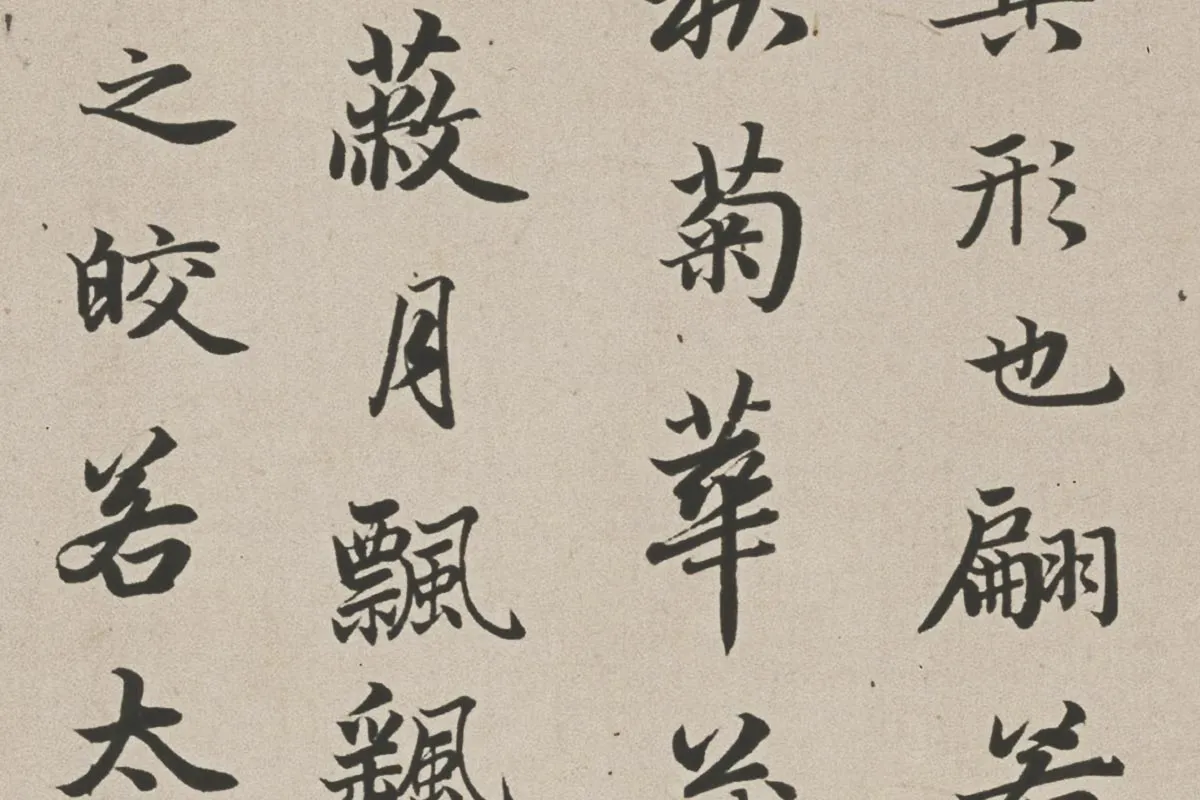 其形也翩若
秋菊華
蔽月飄颻
之皎若太